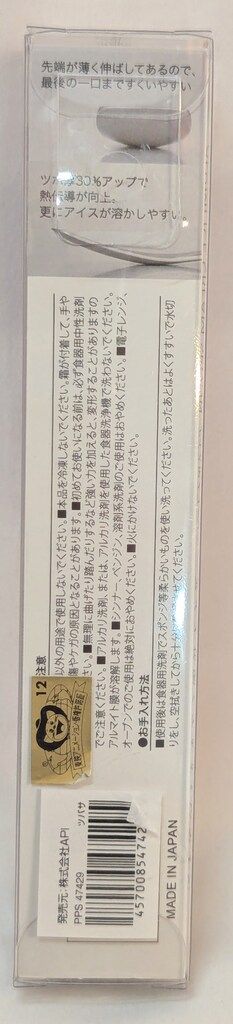 先端が薄く伸ばしてあるので、
最後の一口まですくいやすい
30%アップで
熱伝導が向上。
更にアイスが溶かしやすい。
12 注意
以外の用途で使用しないでください。■本品を冷凍しないでください。霜が付着して、手や
傷やケガの原因となることがあります。■初めてお使いになる前は、必ず食器用中性洗剤
さい。■無理に曲げたり踏んだりするなど強い力を加えると、変形することがありますの
でご注意ください。■アルカリ洗剤、または、アルカリ洗剤を使用した食器洗浄機で洗わないでください。
アルマイト膜が溶解します。■シンナー、ベンジン、溶剤系洗剤のご使用はおやめください。■電子レンジ、
オーブンでのご使用は絶対におやめください。■火にかけないでください。
●お手入れ方法
■使用後は食器用洗剤でスポンジ等柔らかいものを使い洗ってください。洗ったあとはよくすすいで水切
りをし、空拭きしてから十分させてください。
発売元:株式会社API
PPS 47429
ツバサ
45700854742
MADE IN JAPAN